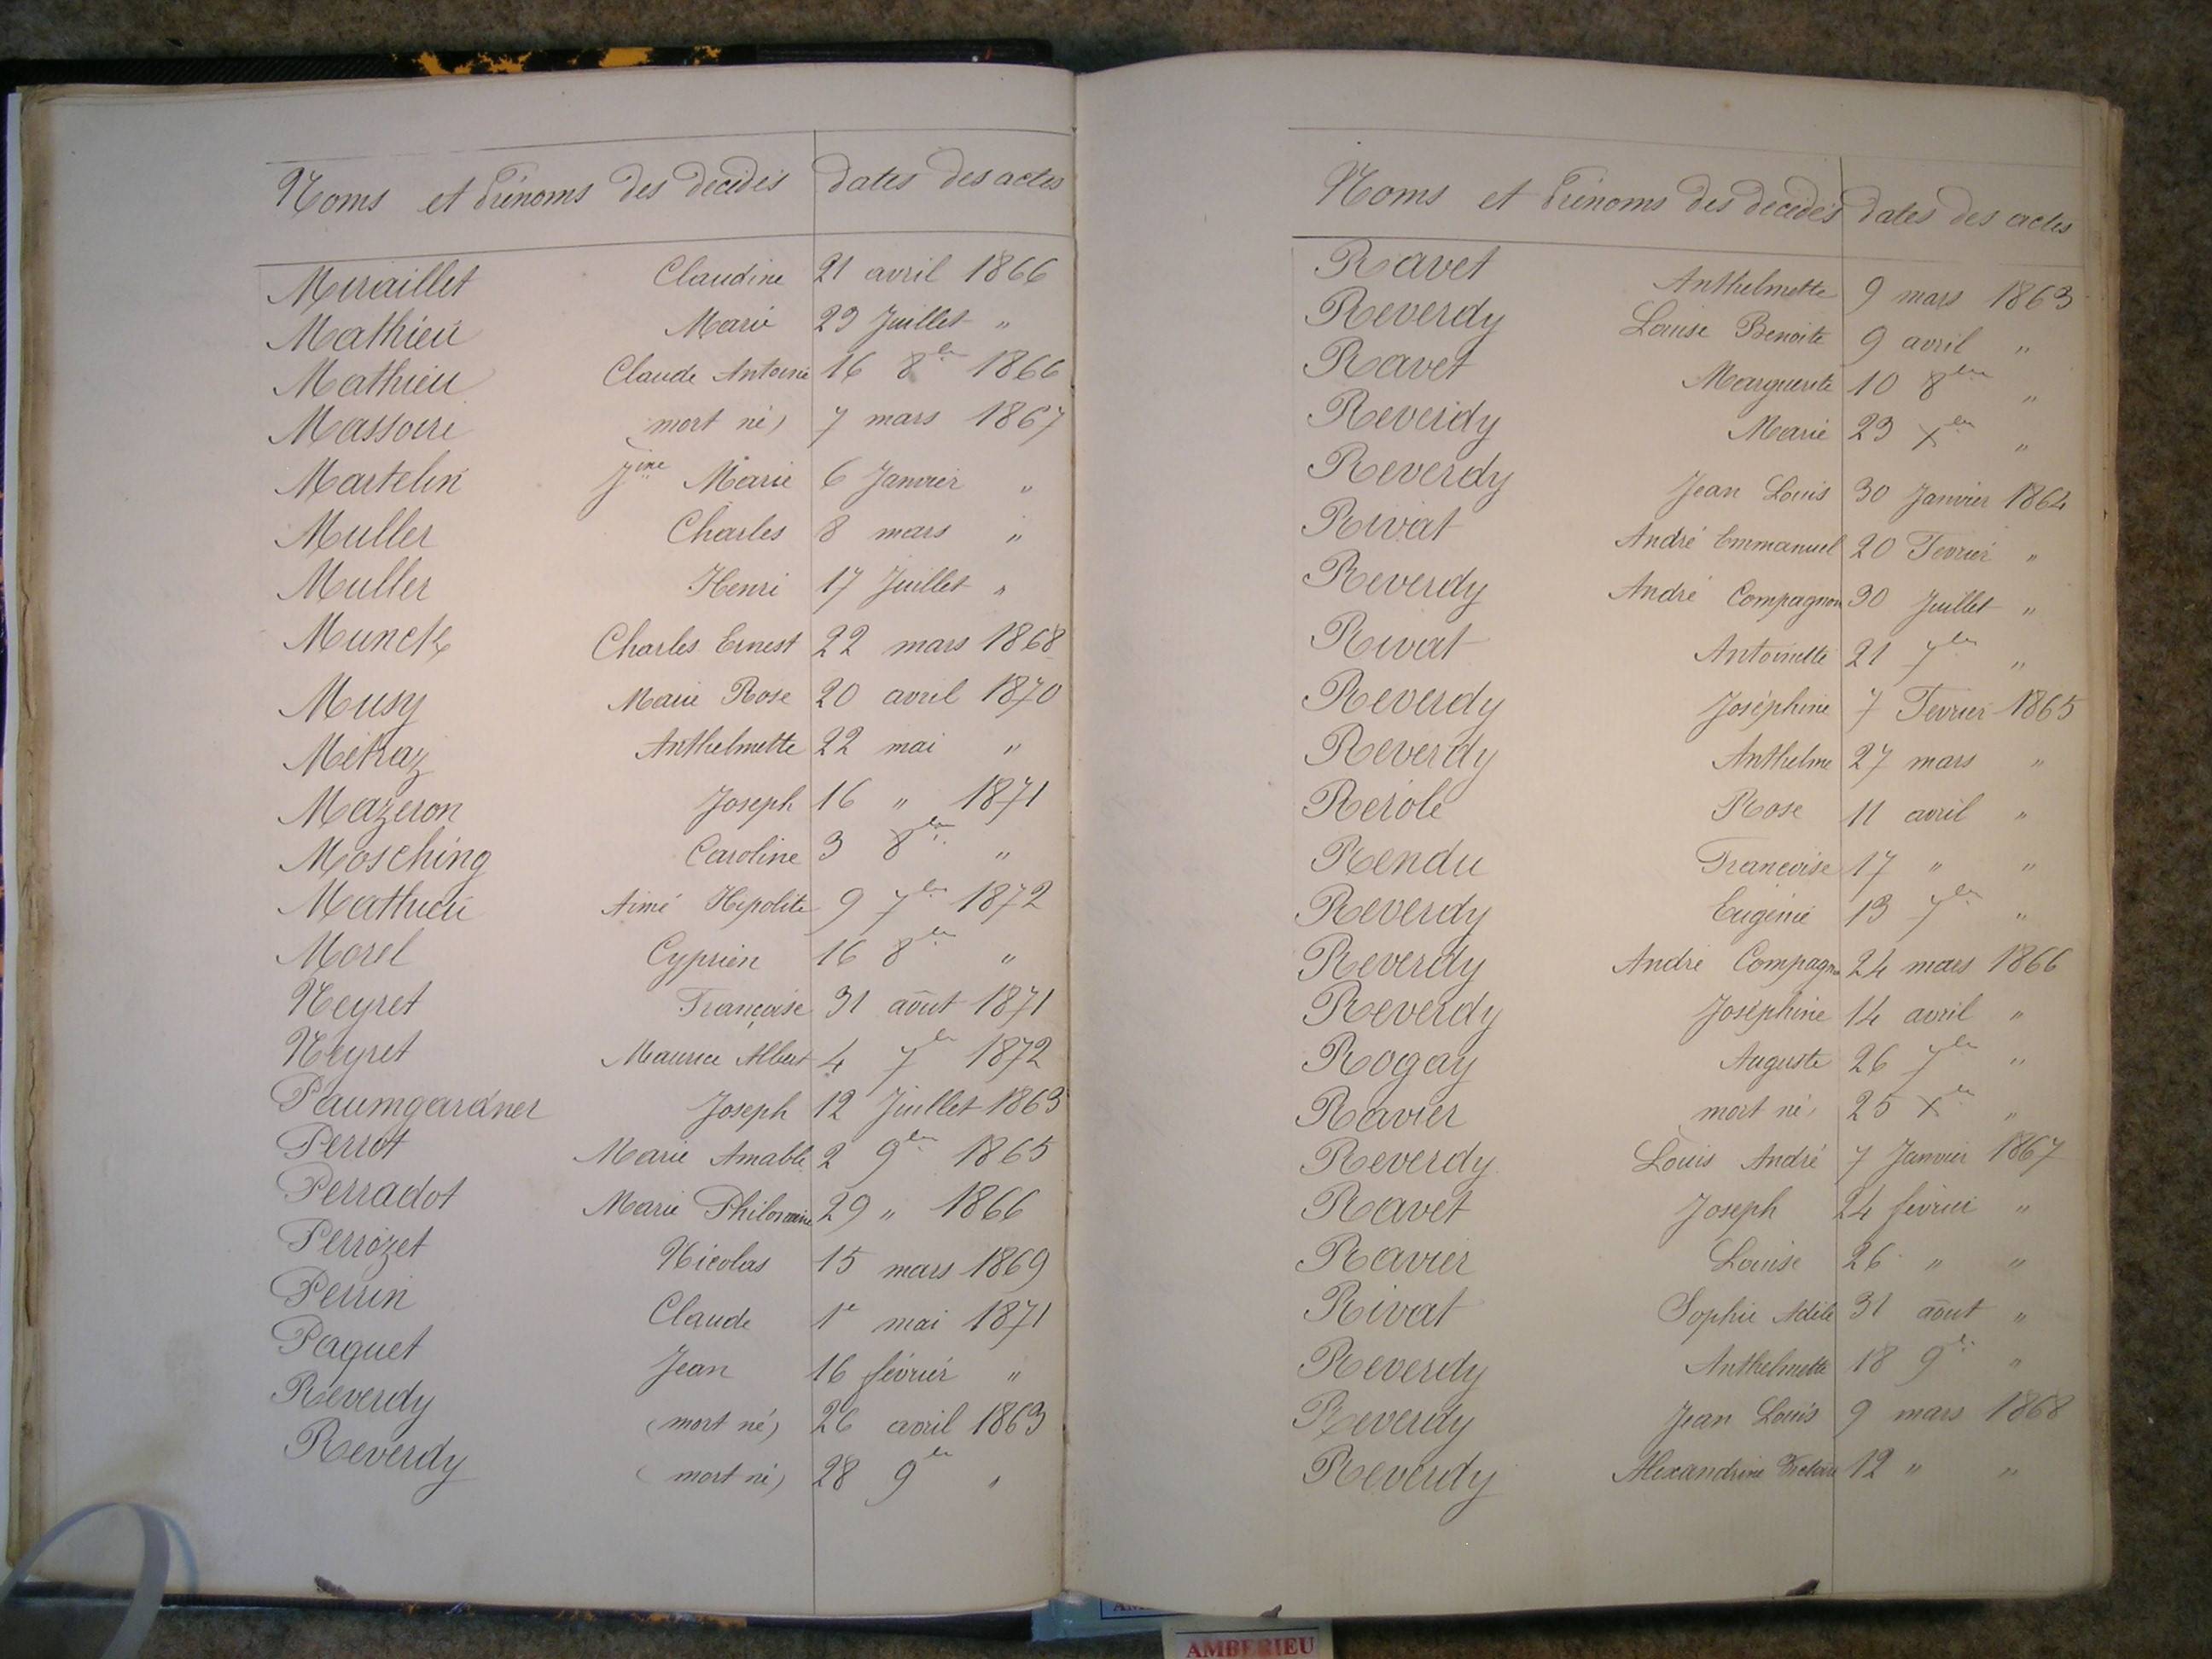 Noms et Prénoms des décédés dates des actes
Miraillet Claudine 21 avril 1866
Mathieu Marie 23 Juillet "
Mathieu Claude Antoine 16 8bre 1866
Massoire (mort né) 7 mars 1867
Martelin Jine Marie 6 Janvier "
Muller Charles 8 mars "
Muller Henri 17 Juillet "
Munck Charles Ernest 22 mars 1868
Musy Marie Rose 20 avril 1870
Métraz Anthelmette 22 mai "
Mazeron Joseph 16 " 1871
Mosching Caroline 3 8bre "
Mathieu Aimé Hipolite 9 7bre 1872
Morel Cyprien 16 8bre "
Neyret Françoise 31 août 1871
Neyret Maurice Albert 4 7bre 1872
Paumgardner Joseph 12 Juillet 1863
Perrot Marie Amable 2 9bre 1865
Perradot Marie Philomène 29 " 1866
Perrozet Nicolas 15 mars 1869
Perrin Claude 1er mai 1871
Paquet Jean 16 février "
Reverdy (mort né) 26 avril 1863
Reverdy (mort né) 28 9bre "
Noms et Prénoms des décédés dates des actes
Ravet Anthelmette 9 mars 1863
Reverdy Louise Benoite 9 avril "
Ravet Marguerite 10 8bre "
Reverdy Marie 23 Xbre "
Reverdy Jean Louis 30 Janvier 1864
Rivat André Emmanuel 20 Fevrier "
Reverdy André Compagnon 30 Juillet "
Rivat Antoinette 21 7bre "
Reverdy Joséphine 7 Fevrier 1865
Reverdy Anthelme 27 mars "
Rérole Rose 11 avril "
Rendu Francoise 17 " "
Reverdy Eugénie 13 7bre "
Reverdy André Compagnon 24 mars 1866
Reverdy Joséphine 14 avril "
Rogay Auguste 26 7bre "
Ravier (mort né) 25 Xbre "
Reverdy Louis André 7 Janvier 1867
Ravet Joseph 24 février "
Ravier Louise 26 " "
Rivat Sophie Adèle 31 août "
Reverdy Anthelmette 18 9bre "
Reverdy Jean Louis 9 mars 1868
Reverdy Alexandrine 12 " "
AMBERIEU